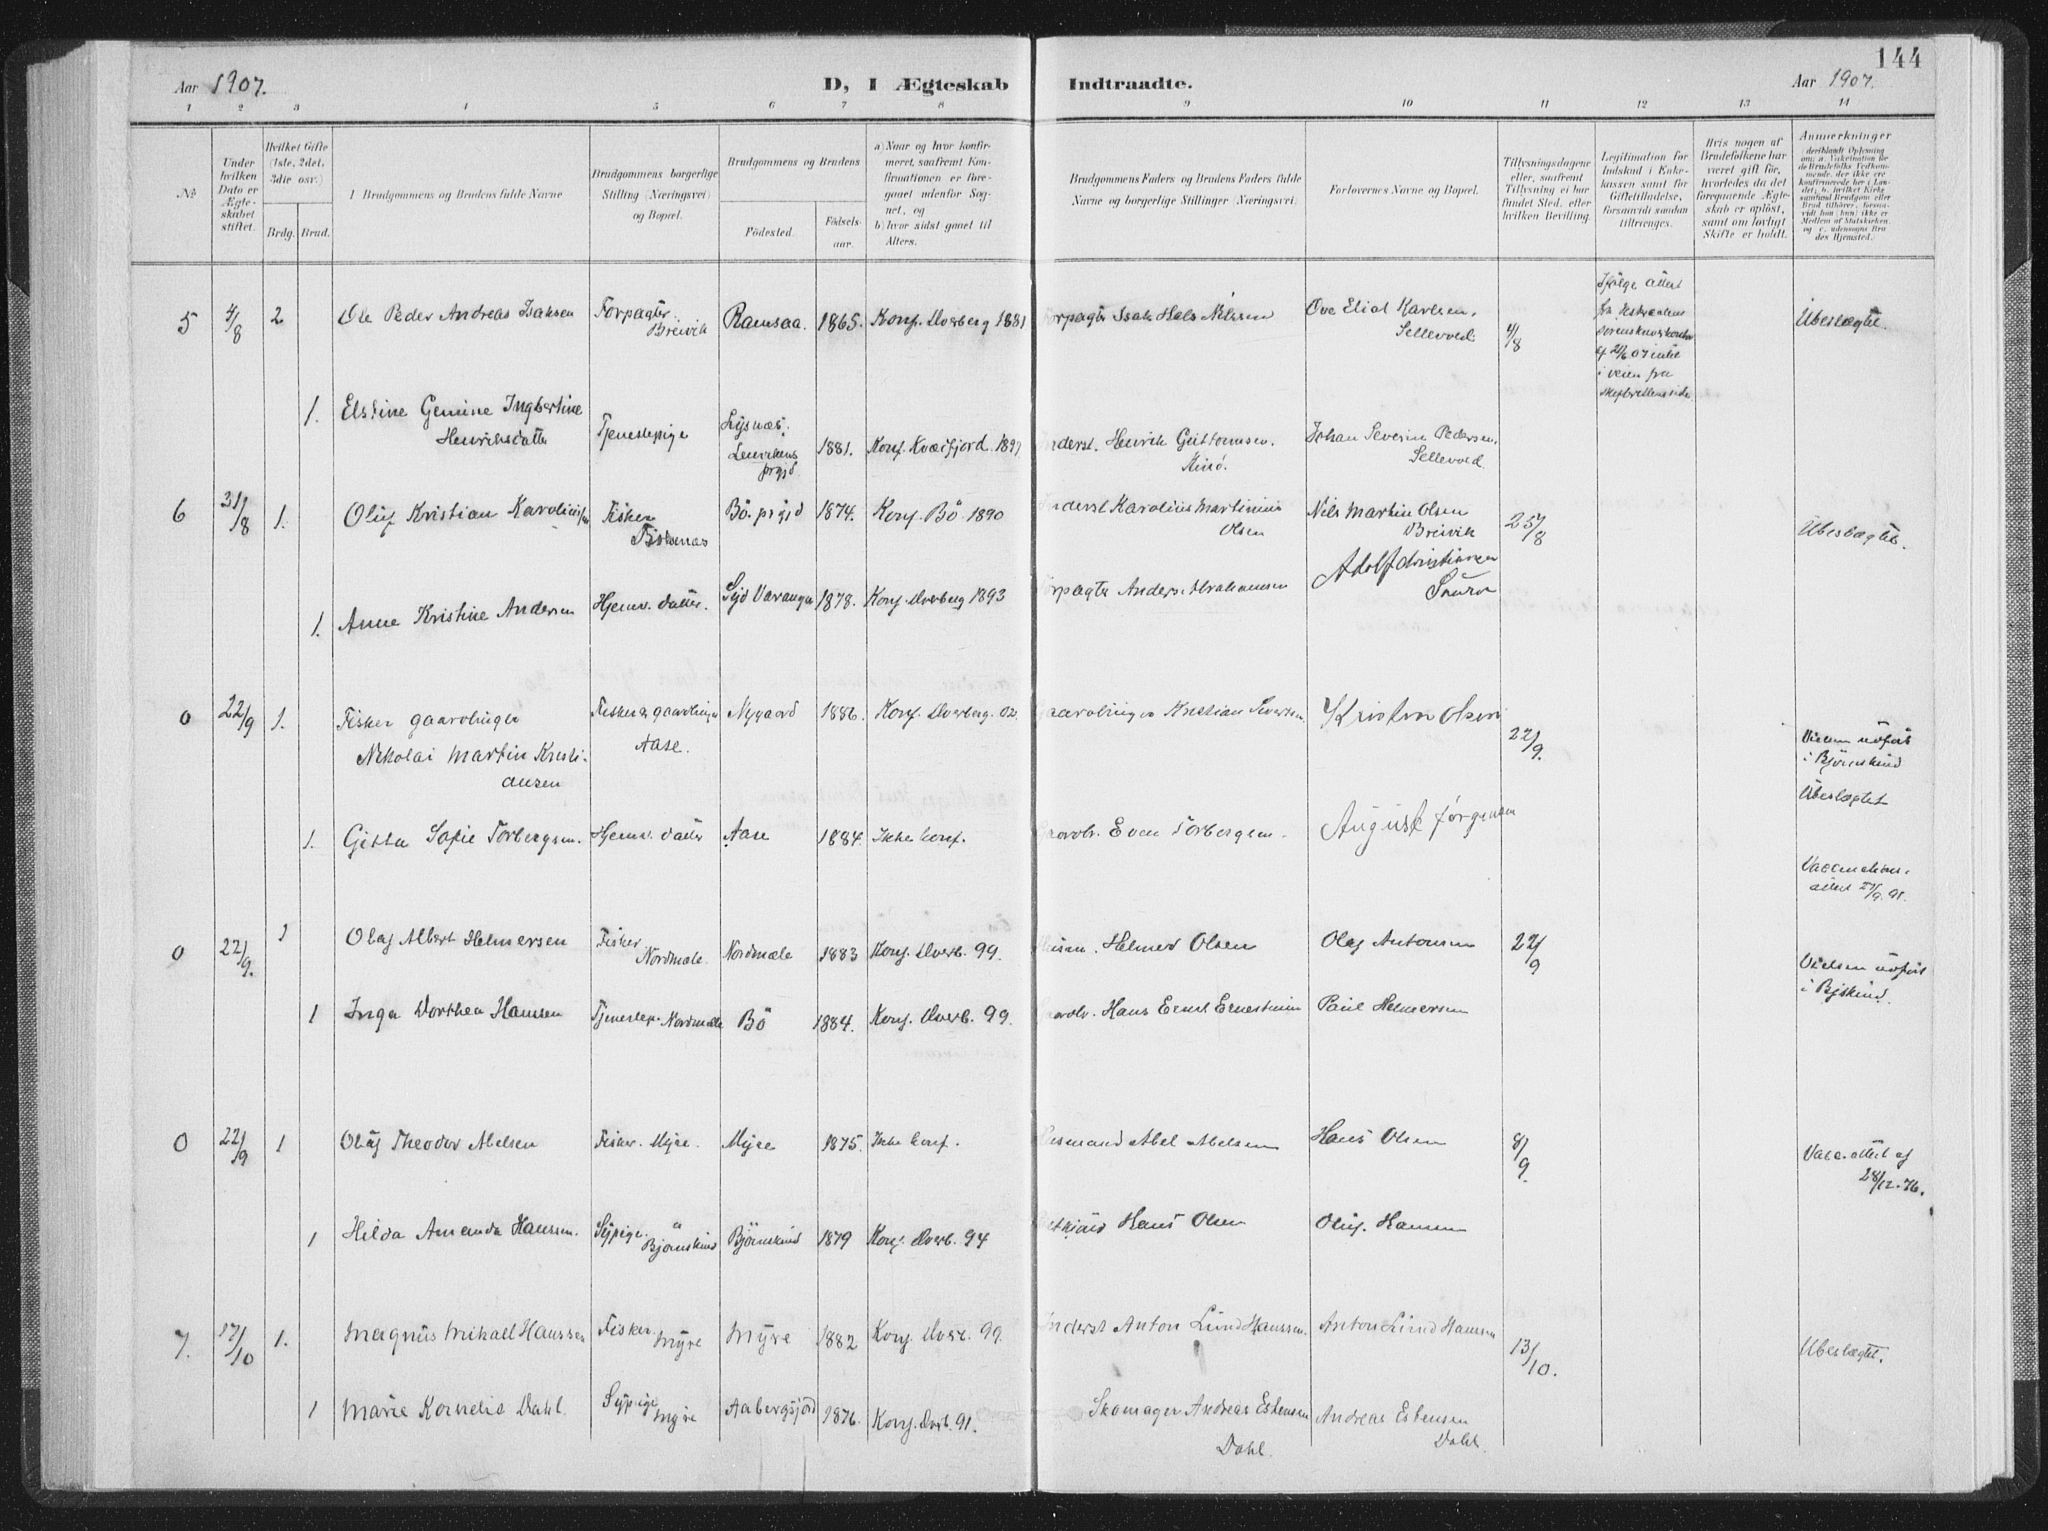 144
Aar 1907.
D, I Ægteskab Indtraadte.
Aar 1907.
1 2 3 4 5 6 7 8 9 10 11 12 13 14
№
Under hvilken Dato er Ægteskabet stiftet.
Hvilket Gifte (1ste, 2det, 3die osv.)
Brdg. Brud.
I Brudgommens og Brudens fulde Navne
Brudgommens borgerlige Stilling (Næringsvei) og Bopæl.
Brudgommens og Brudens
Födested.
Födselsaar.
a) Naar og hvor konfirmeret, saafremt Konfirmationen er foregaaet udenfor Sognet, og
b) hvor sidst gaaet til Alters.
Brudgommens Faders og Brudens Faders fulde Navne og borgerlige Stillinger (Næringsvei)
Forlovernes Navne og Bopæl.
Tillysningsdagene eller, saafremt Tillysning ei har fundet Sted, efter hvilken Bevilling.
Legitimation for Indskud i Enkekassen samt for Giftetilladelse, forsaavidt saadan tiltrænges.
Hvis nogen af Brudefolkene har været gift för, hvorledes da det foregaaende Ægteskab er oplöst, samt om lovligt Skifte er holdt.
Anmerkninger
5 4/8 2 Ole Peder Andreas Isaksen Forpagter Breivik Ramsaa. 1865. Konf. Dverberg 1881
Forpagter Isak Hals Nilssen Ove Eliot Karlsen, Sellevold. 4/8 Ubeslægtet.
1. Elstine Gemine Ingbertine Henriksdatter Tjenestepige Lysnæs, Lenvikens prgjd 1881. Konf. Kvæfjord 1897
Inderst. Henrik Guttormsen. Johan Severin Pedersen, Sellevold
6 31/8 1. Oluf Kristian Karoliussen Fisker Bö prgjd 1874. Konf. Bö 1890
Inderst Karolius Martinius Olsen Nils Martin Olsen Breivik 25/8 Ubeslægtet.
1. Anne Kristine Andersen Hjemv. datter. Syd Varanger 1878. Konf. Dverberg 1893
Forpagter Anders Abrahamsen Adolf Kristiansen
0 22/9 1. Fisker gaardbruger Nikolai Martin Kristiansen Fisker og gaardbruger Aase. Nygaard 1886. Konf. Dverberg. 02.
Gaardbruger Kristian Sivertsen Kristen Olsen 22/9. Vielsen udført i Bjørnskind Ubeslægtet
1. Gitta Sofie Torbergsen. Hjemv. datter Aase 1884. Ikke konf.
Gaardbr. Even Torbergsen. August Jørgensen Vaccinations attest
0 22/9. 1 Olaf Albert Helmersen Fisker Nordmæle. Nordmæle 1883 Konf. Dverb. 99.
Husm. Helmer Olsen Olaf Antonsen 22/9 Vielsen udført i Bjskind.
1 Inga Dorthea Hansen Tjenestep. Nordmæle Bö 1884. Konf. Dverb. 99.
Gaardbr. Hans Ernst Ernestinius Paul Helmersen
0 22/9 1 Oluf Theodor Abelsen Fisker. Myre. Myre 1875. Ikke konf.
Husmand Abel Abelsen Hans Olsen 8/9. Vacc. attest af 28/12.76.
1 Hilda Amanda Hansen. Sypige. Bjørnskind Bjørnskind 1879 Konf. Dverb. 94
Hans Olsen Oluf Hansen
7. 17/10 1. Magnus Mikael Hanssen Fisker. Myre Myre 1882 Konf. Dverb. 99.
Inderst Anton Lund Hanssen. Anton Lund Hansen 13/10. Ubeslægtet.
1 Marie Kornelie Dahl. Sypige Myre Aabergsjord 1876. Konf. Dverb. 91.
Skomager Andreas Estensen Dahl. Andreas Estensen Dahl.